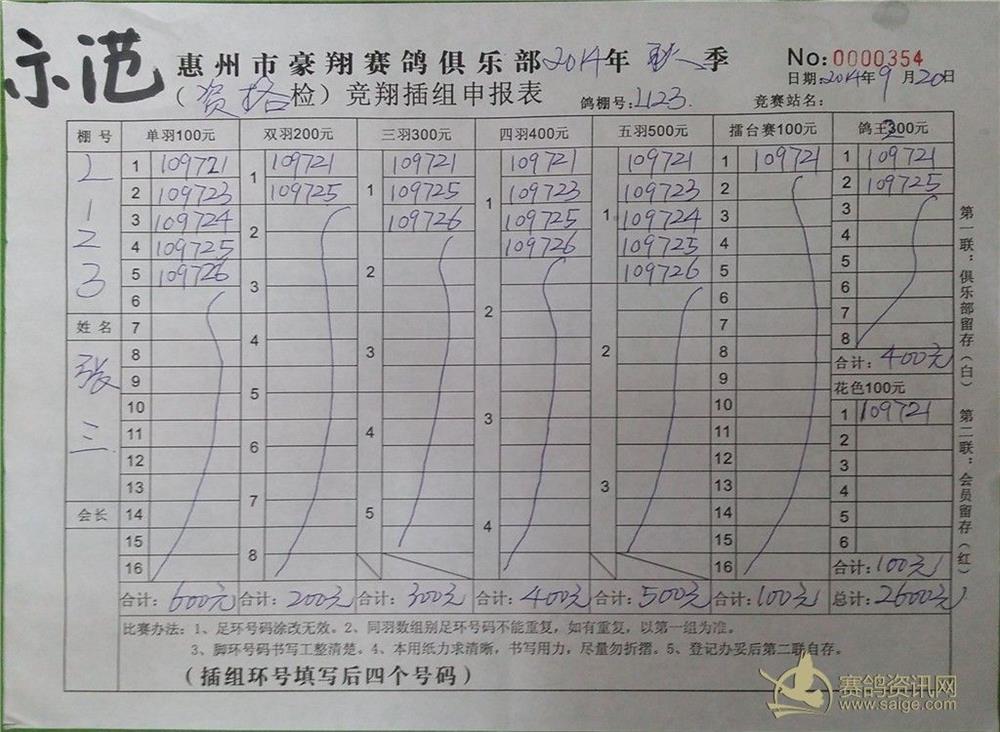 示范
惠州市豪翔赛鸽俱乐部2014年秋季
No:0000354
日期:2014年9月20日
(资格检)竞翔插组申报表
鸽棚号:2123
竞赛站名:
棚号 单羽100元 双羽200元 三羽300元 四羽400元 五羽500元 擂台赛100元 鸽王200元
2 1 2 3
姓名
张三
会长
1 109721
2 109723
3 109724
4 109725
5 109726
6
7
8
9
10
11
12
13
14
15
16
合计: 600元
1 109721
109725
2
3
4
5
6
7
8
合计: 200元
1 109721
109725
109726
2
3
4
5
合计: 300元
1 109721
109723
109725
109726
2
3
4
合计: 400元
1 109721
109723
109724
109725
109726
2
3
合计: 500元
1 109721
2
3
4
5
6
7
8
9
10
11
12
13
14
15
16
合计: 100元
1 109721
2 109725
3
4
5
6
7
8
合计: 400元
花色100元
1 109721
2
3
4
5
6
合计: 100元
总计: 2600元
第一联:俱乐部留存(白) 第二联:会员留存(红)
比赛办法:1、足环号码涂改无效。2、同羽数组别足环号码不能重复,如有重复,以第一组为准。
3、脚环号码书写工整清楚。4、本用纸力求清晰,书写用力,尽量勿折摺。5、登记办妥后第二联自存。
(插组环号填写后四个号码)
赛鸽资讯网
www.saige.com